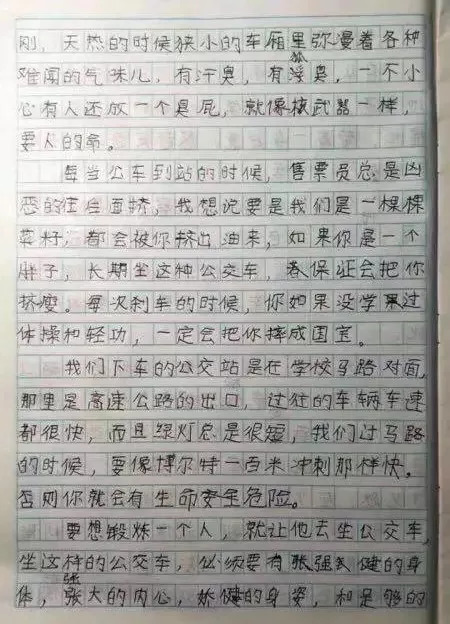 刚，天热的时候狭小的车厢里弥漫着各种
难闻的气味儿，有汗臭，有狐臭，一不小
心有人还放一个臭屁，就像核武器一样，
要人的命。
每当公车到站的时候，售票员总是凶
恶的往后面挤，我想说要是我们是一棵棵
菜籽，都会被你挤出油来，如果你是一个
胖子，长期坐这种公交车，保证会把你
挤瘦。每次刹车的时候，你如果没学过
体操和轻功，一定会把你摔成国宝。
我们下车的公交站是在学校马路对面，
那里是高速公路的出口，过往的车辆车速
都很快，而且绿灯总是很短，我们过马路
的时候，要像博尔特一百米冲刺那样快。
否则你就会有生命安全危险。
要想锻炼一个人，就让他去坐公交车，
坐这样的公交车，必须要有强健的身
体，强大的内心，娇健的身姿，和足够的